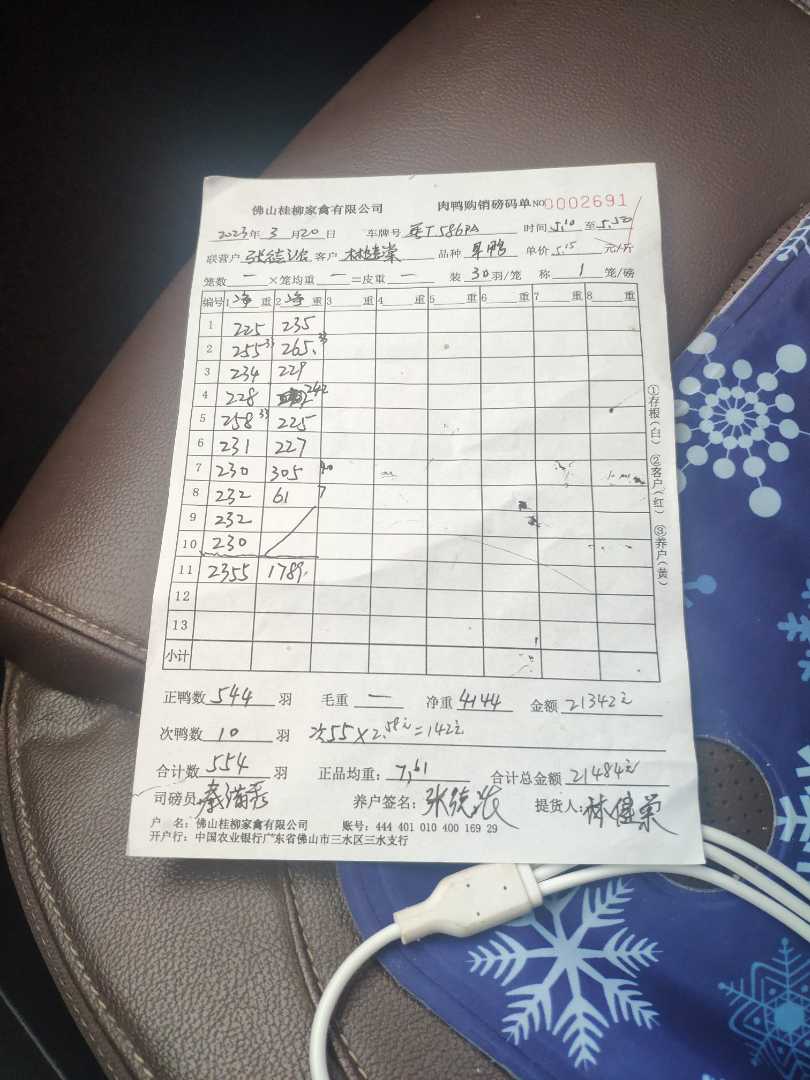 佛山桂柳家禽有限公司 肉鸭购销磅码单 NO 0002691
2023年 3 月20日 车牌号 粤T586PA 时间 5.10 至 5.50
联营户 客户 林健棠 品种 单价 5.15 元/斤
笼数 一 ×笼均重 一 =皮重 一 装 30 羽/笼 称 1 笼/磅
编号 1 净 重 2 净 重 3 重 4 重 5 重 6 重 7 重 8 重
1 225 235
2 255 33 265. 33
3 234 229
4 228 242
5 258 33 225
6 231 227
7 230 305 40
8 232 61 7
9 232
10 230
11 2355 1789.
12
13
小计
①存根(白) ②客户(红) ③养户(黄)
正鸭数 544 羽 毛重 一 净重 4144 金额 21342元
次鸭数 10 羽 次55×2.58元=142元
合计数 554 羽 正品均重: 7.61 合计总金额 21484元
司磅员 养户签名: 提货人: 林健棠
户 名: 佛山桂柳家禽有限公司 账号: 444 401 010 400 169 29
开户行: 中国农业银行广东省佛山市三水区三水支行